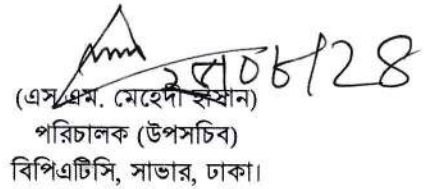 (এস.এম. মেহেদী হাসান)
পরিচালক (উপসচিব)
বিপিএটিসি, সাভার, ঢাকা।